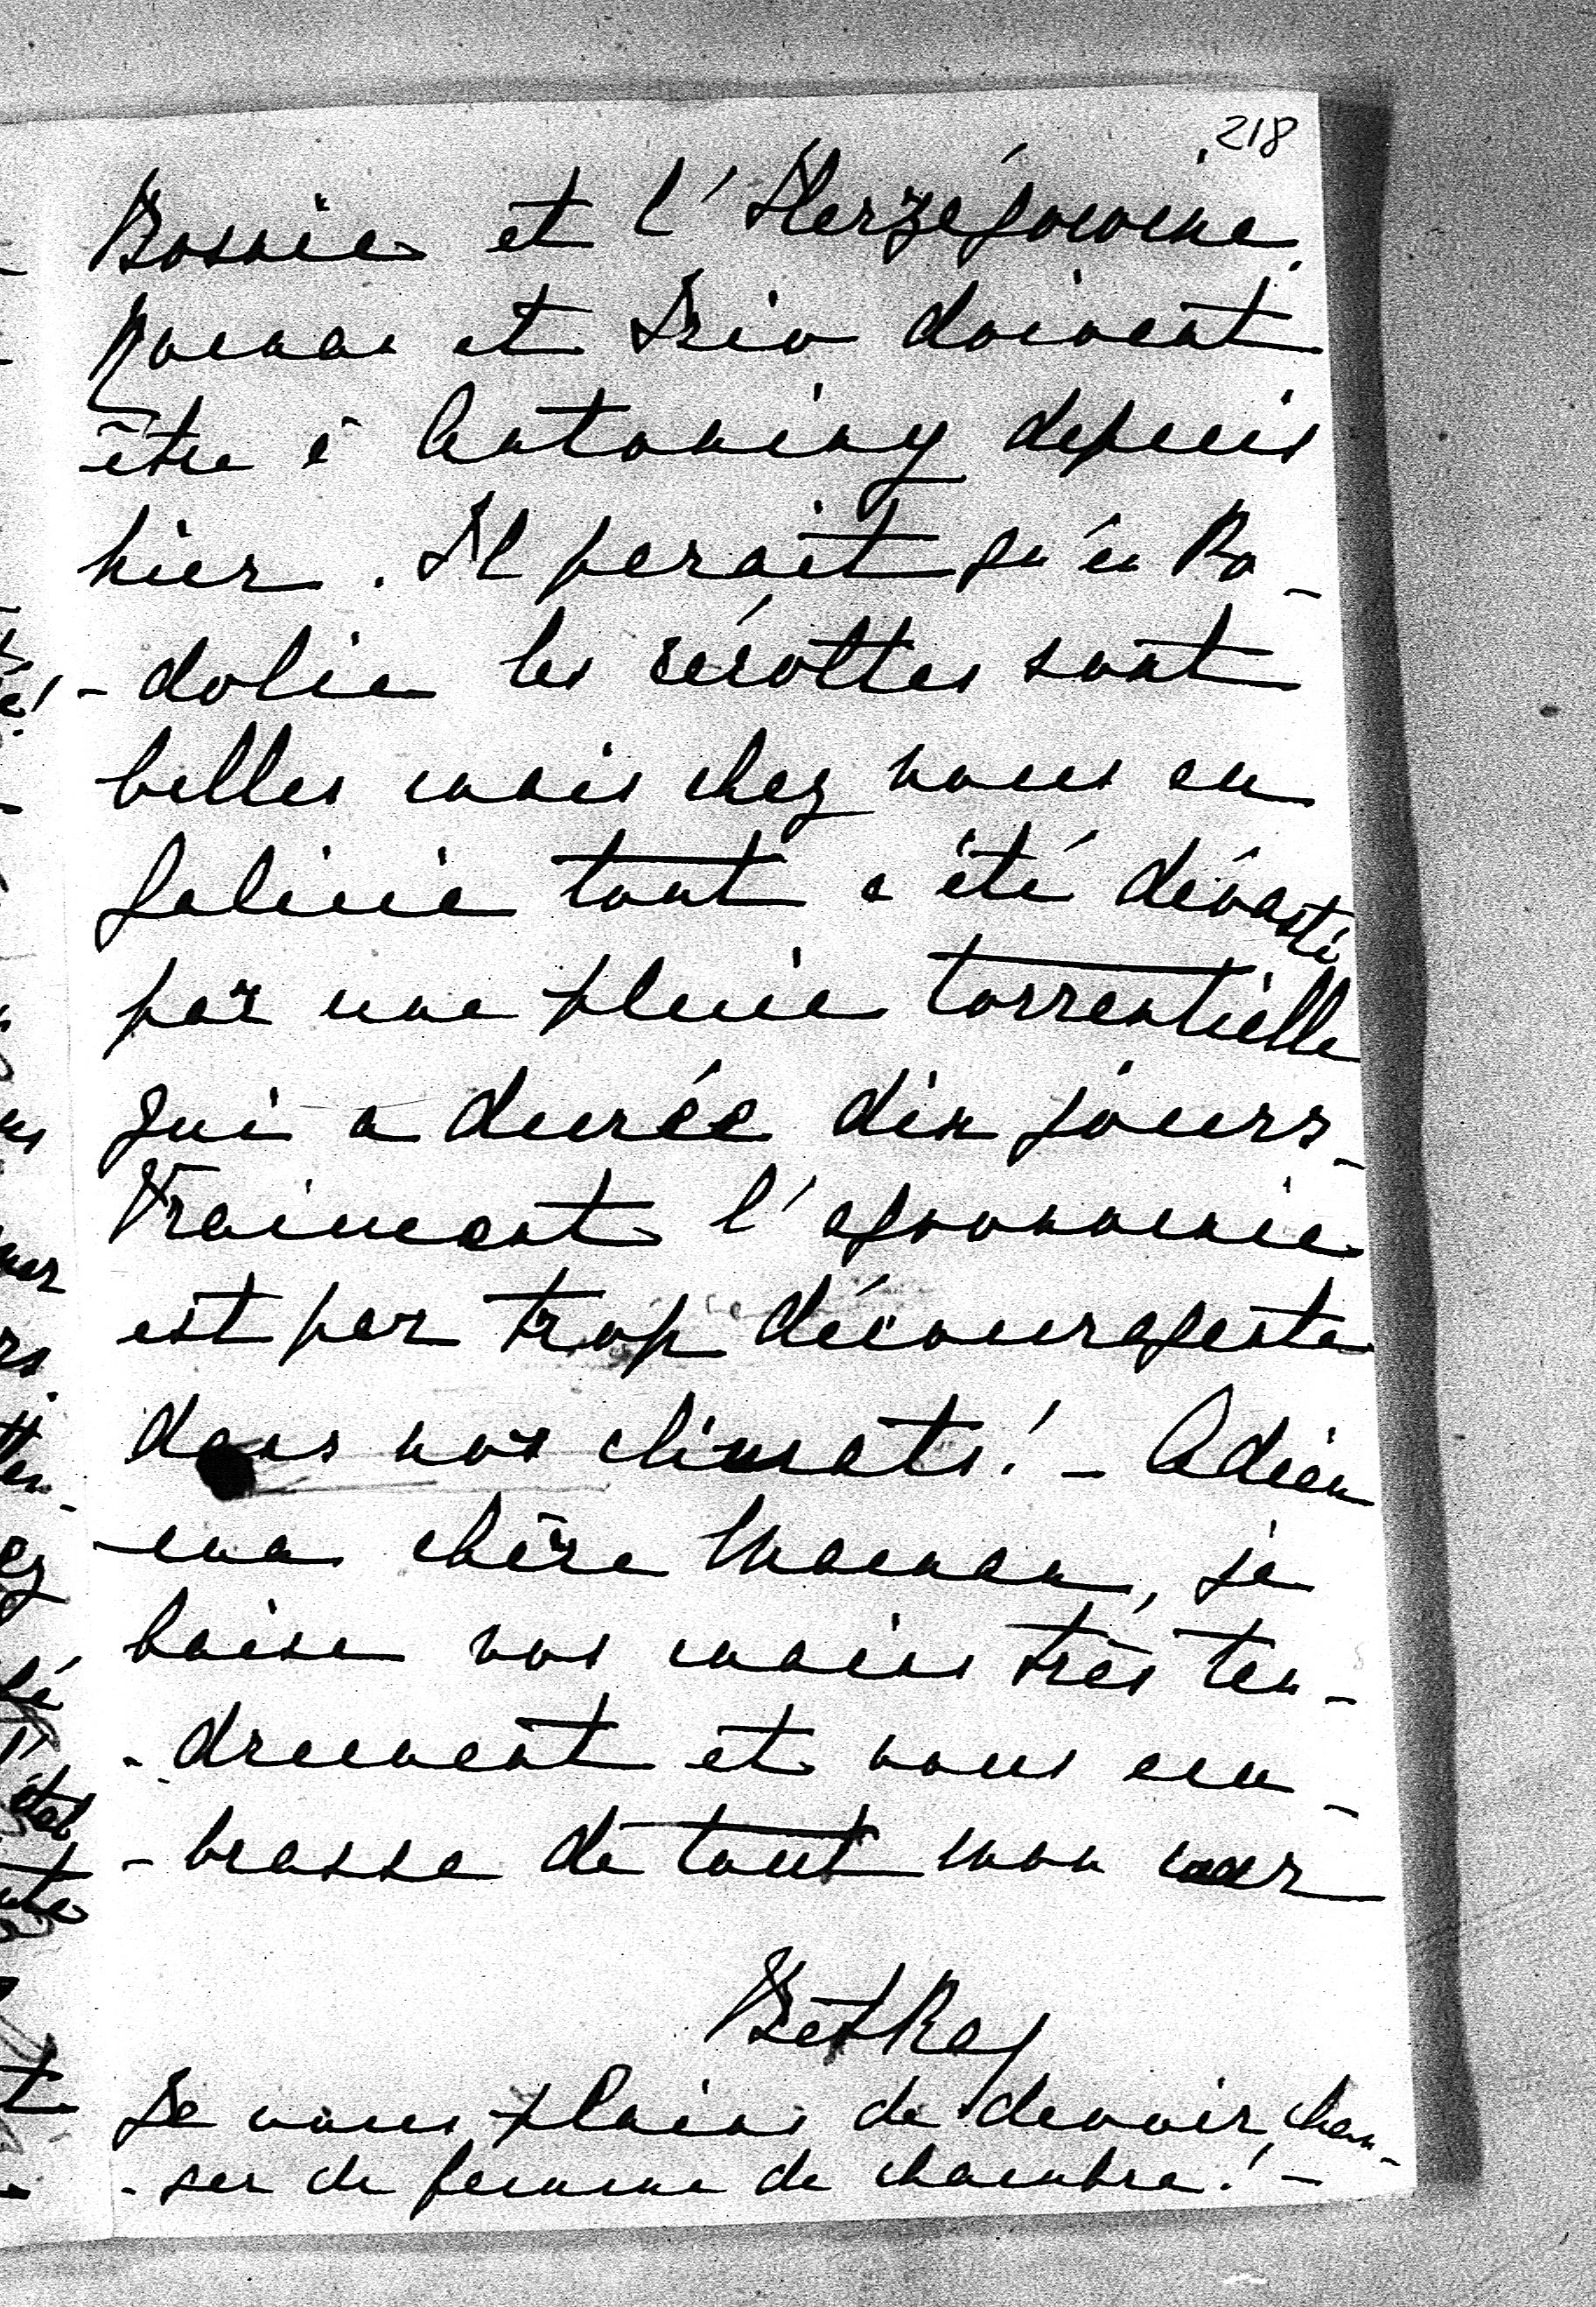 218
Bosnie et l'Herzégowine.
Mama et Trio doivent
être à Antoniny depuis
hier. Il parait qu'en Po-
-dolie les récoltes sont
belles mais chez nous en
Galicie tout a été dévasté
par une pluie torrentielle
qui a durée dix jours-
Vraiment l'agronomie
est par trop décourageante
dans nos climats! - Adieu
ma chère Maman, je
baise vos mains très ten-
-drement et vous em-
-brasse de tout mon cœur
Betka
Je vous plains de devoir chan-
-ger de femme de chambre! -